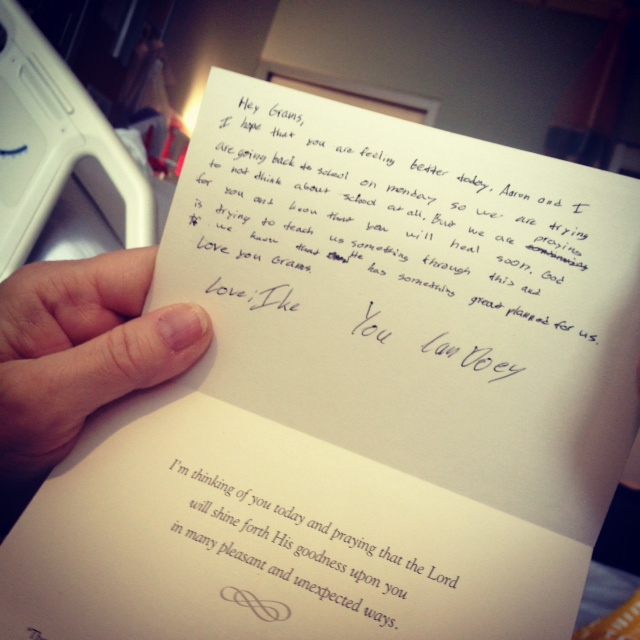 Hey Grams,
I hope that you are feeling better today, Aaron and I
are going back to school on monday so we are trying
to not think about school at all. But we are praying
for you and know that you will heal soon. God
is trying to teach us something through this and
we know that He has something great planned for us.
Love you Grams.
Love, Ike
You Can Doey
I'm thinking of you today and praying that the Lord
will shine forth His goodness upon you
in many pleasant and unexpected ways.